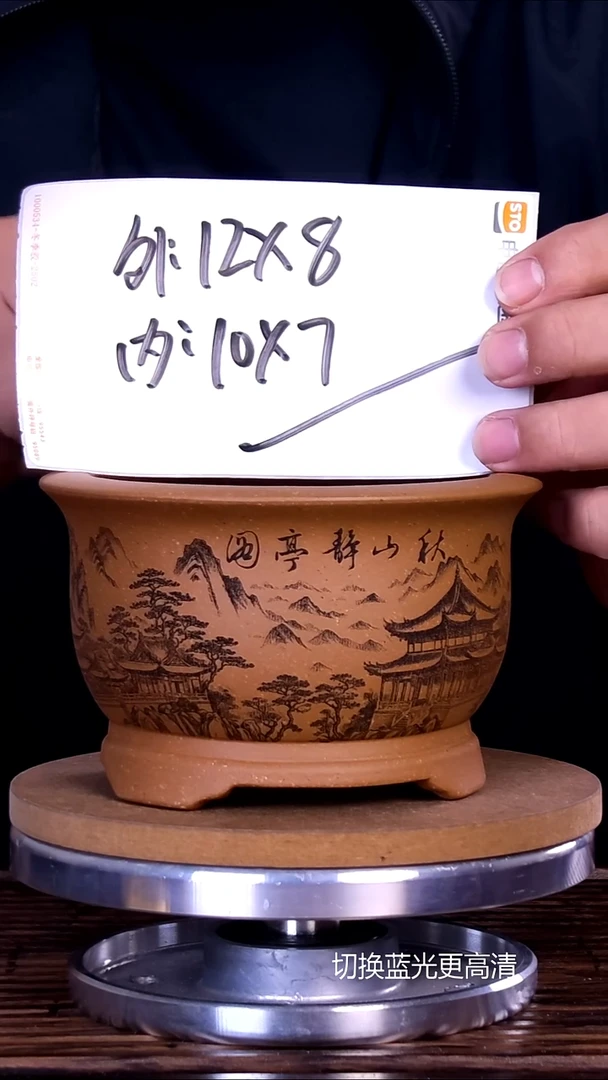 外:12X8
内:10X7
STO
秋山静亭图
切换蓝光更高清